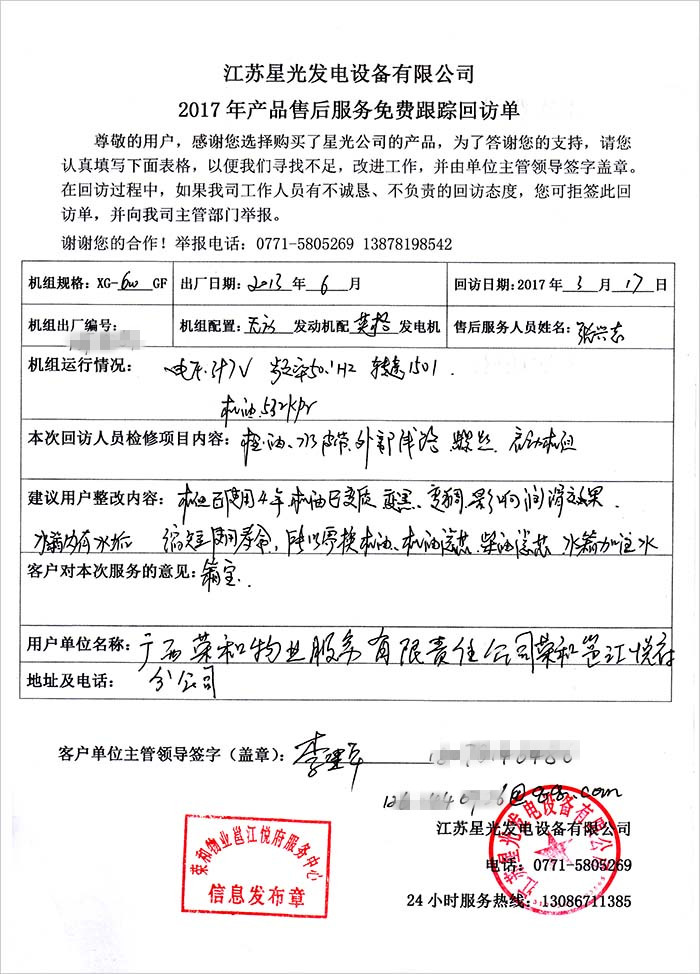 江苏星光发电设备有限公司
2017年产品售后服务免费跟踪回访单
尊敬的用户，感谢您选择购买了星光公司的产品，为了答谢您的支持，请您
认真填写下面表格，以便我们寻找不足，改进工作，并由单位主管领导签字盖章。
在回访过程中，如果我司工作人员有不诚恳、不负责的回访态度，您可拒签此回
访单，并向我司主管部门举报。
谢谢您的合作！举报电话：0771-5805269 13878198542
机组规格：XG-600GF 出厂日期：2013年6月 回访日期：2017年3月17日
机组出厂编号： 机组配置： 发动机配英格发电机 售后服务人员姓名：
机组运行情况： 电压:397V 频率50.1HZ 转速1501.
机油.532kpa
本次回访人员检修项目内容： 机油、水 皮带、外部线路 螺丝. 启动机组
建议用户整改内容： 机组已使用4年 机油已变质 变黑、变稠 影响润滑效果.
水箱内有水垢 缩短使用寿命, 更换机油、机油滤芯.柴油滤芯 水箱加注水
客户对本次服务的意见： 满意.
用户单位名称： 广西荣和物业服务有限责任公司荣和邕江悦府
地址及电话： 分公司
客户单位主管领导签字（盖章）：
江苏星光发电设备有限公司
电话：0771-5805269
24小时服务热线：13086711385
荣和物业邕江悦府服务中心
信息发布章
江苏星光发电设备有限公司